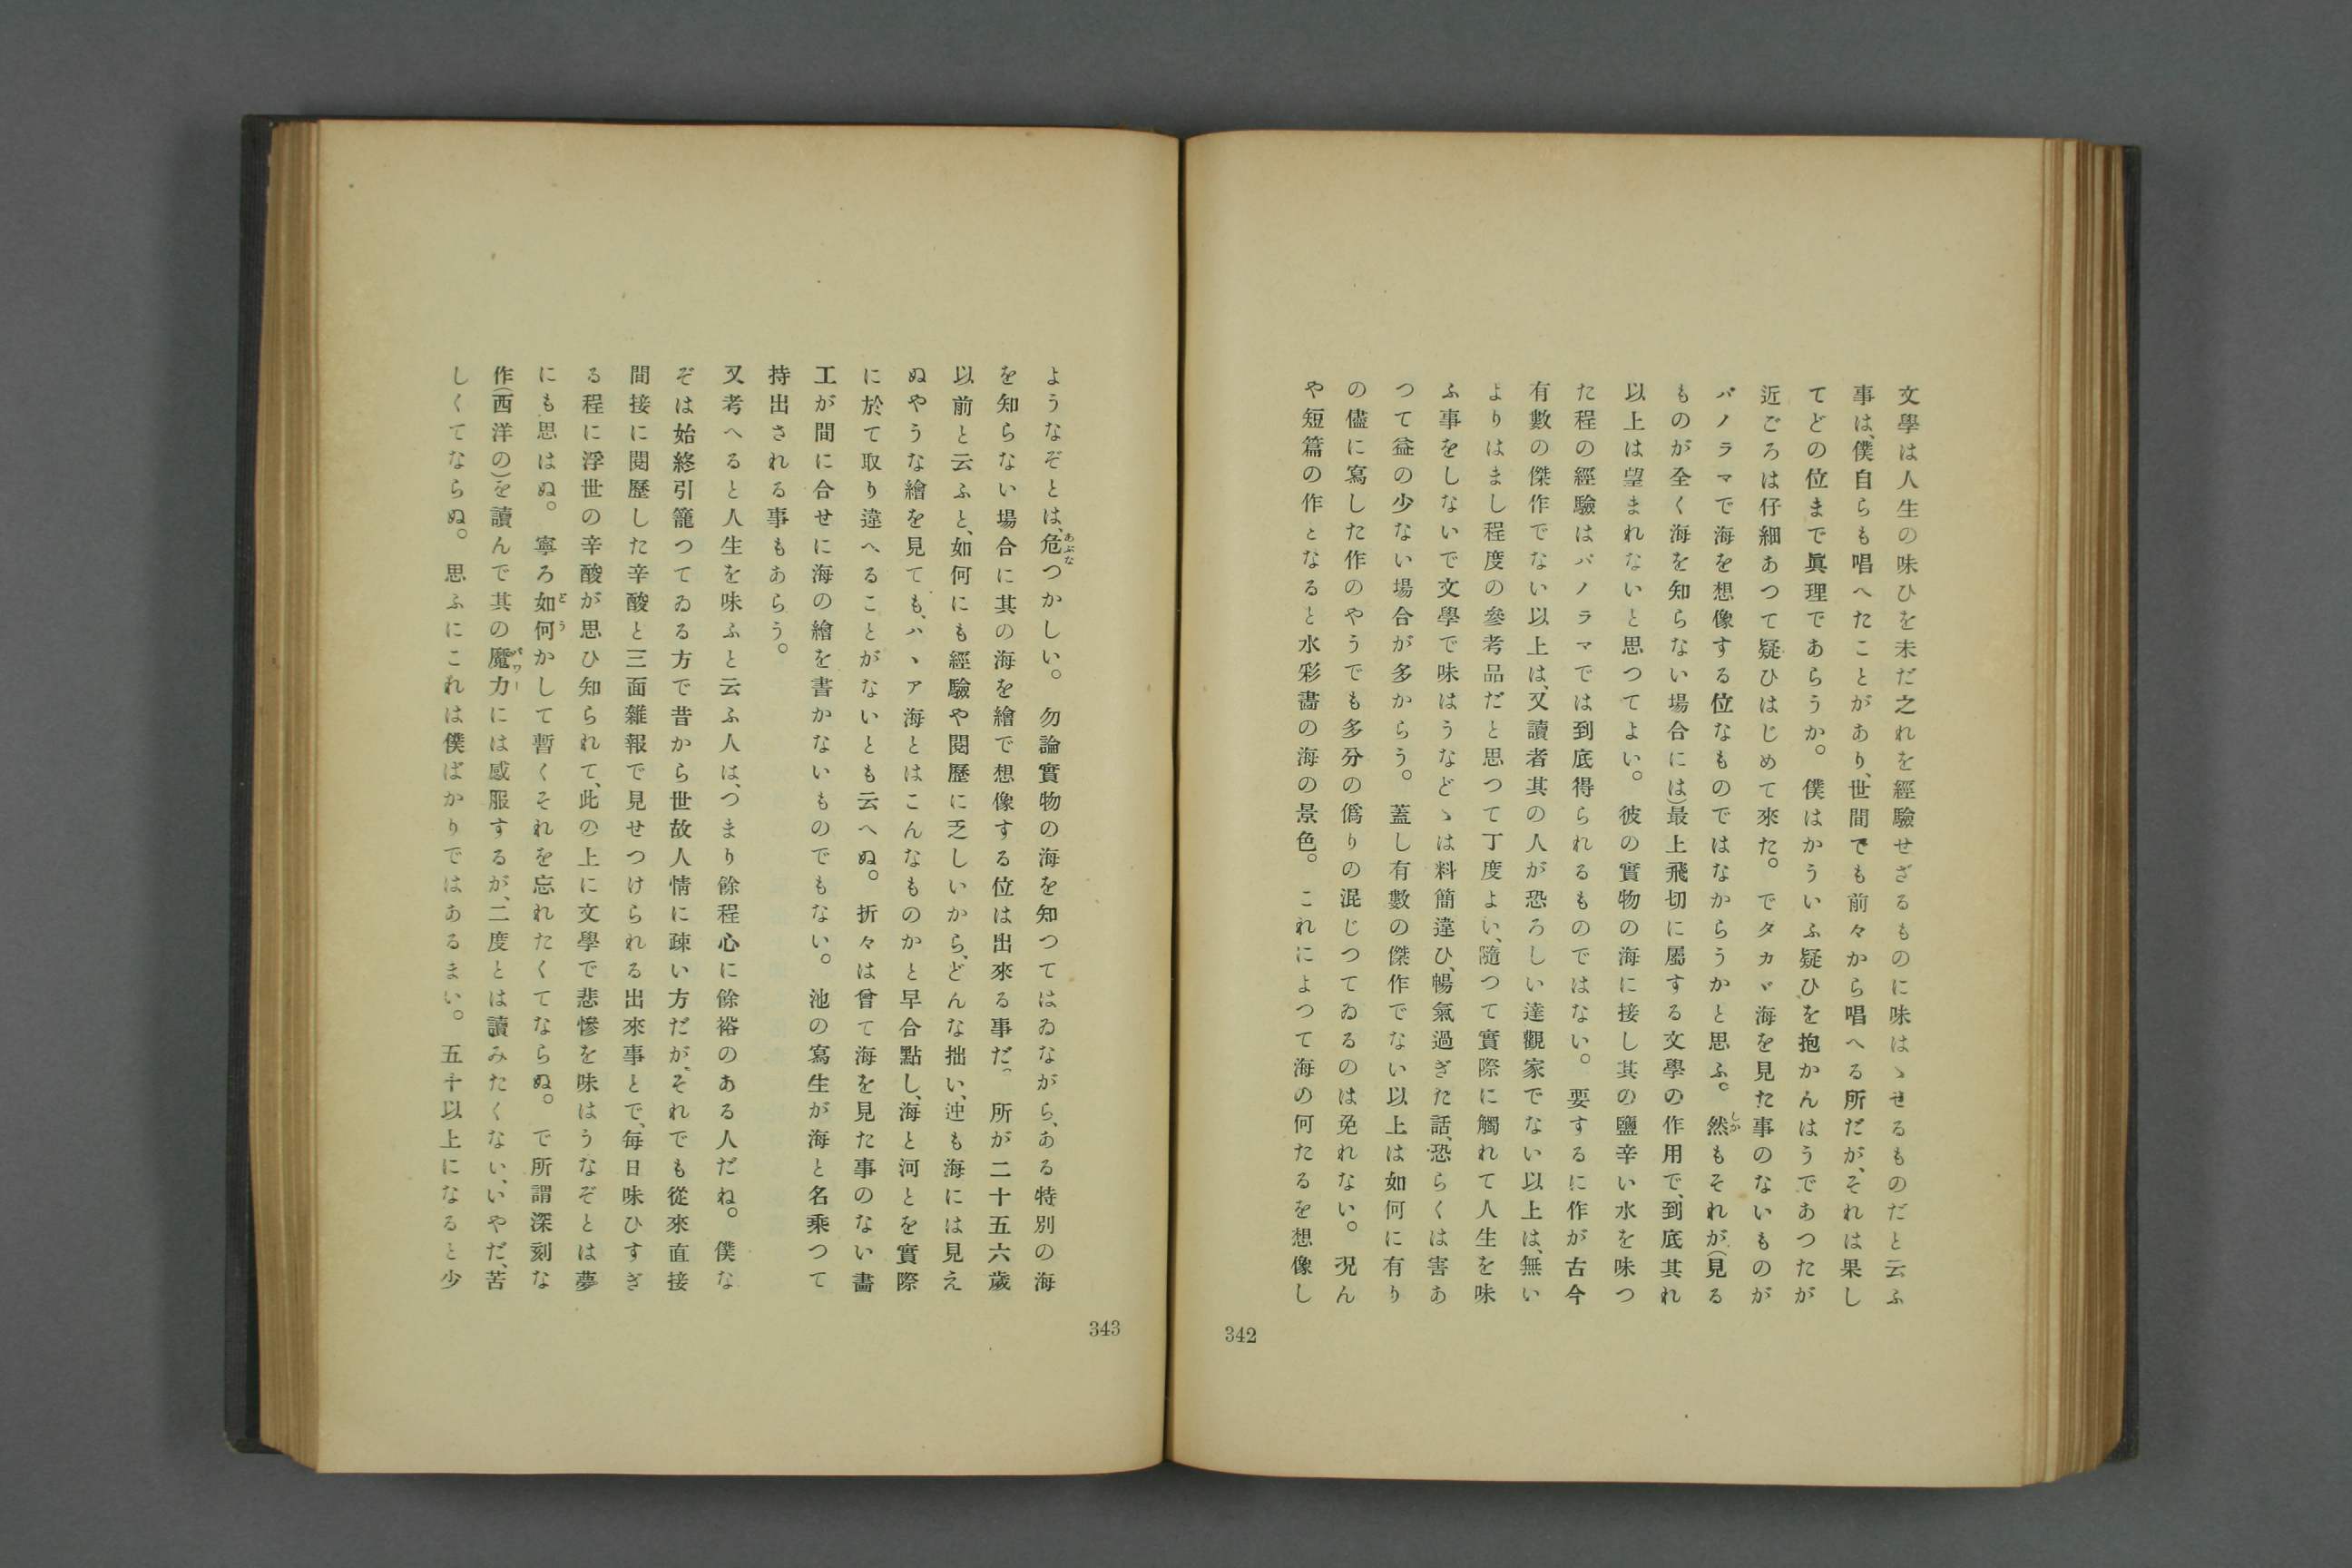 文學は人生の味ひを未だ之れを經驗せざるものに味はゝせるものだと云ふ
事は、僕自らも唱へたことがあり、世間でも前々から唱へる所だが、それは果し
てどの位まで眞理であらうか。僕はかういふ疑ひを抱かんはうであつたが
近ごろは仔細あつて疑ひはじめて來た。でタカヾ海を見た事のないものが
パノラマで海を想像する位なものではなからうかと思ふ。然もそれが(見る
ものが全く海を知らない場合には)最上飛切に屬する文學の作用で、到底其れ
以上は望まれないと思つてよい。彼の實物の海に接し其の鹽辛い水を味つ
た程の經驗はパノラマでは到底得られるものではない。要するに作が古今
有數の傑作でない以上は、又讀者其の人が恐ろしい達觀家でない以上は、無い
よりはまし程度の參考品だと思つて丁度よい、隨つて實際に觸れて人生を味
ふ事をしないで文學で味はうなどゝは料簡違ひ、暢氣過ぎた話、恐らくは害あ
つて益の少ない場合が多からう。蓋し有數の傑作でない以上は如何に有り
の儘に寫した作のやうでも多分の僞りの混じつてゐるのは免れない。況ん
や短篇の作となると水彩畵の海の景色。これによつて海の何たるを想像し
342
ようなぞとは、危つかしい。勿論實物の海を知つてはゐながら、ある特別の海
を知らない場合に其の海を繪で想像する位は出來る事だ。所が二十五六歲
以前と云ふと、如何にも經驗や閱歷に乏しいから、どんな拙い、迚も海には見え
ぬやうな繪を見ても、ハヽア海とはこんなものかと早合點し、海と河とを實際
に於て取り違へることがないとも云へぬ。折々は曾て海を見た事のない畵
工が間に合せに海の繪を書かないものでもない。池の寫生が海と名乘つて
持出される事もあらう。
又考へると人生を味ふと云ふ人は、つまり餘程心に餘裕のある人だね。僕な
ぞは始終引籠つてゐる方で昔から世故人情に疎い方だが、それでも從來直接
間接に閱歷した辛酸と三面雜報で見せつけられる出來事とで、每日味ひすぎ
る程に浮世の辛酸が思ひ知られて、此の上に文學で悲慘を味はうなぞとは夢
にも思はぬ。寧ろ如何かして暫くそれを忘れたくてならぬ。で所謂深刻な
作(西洋の)を讀んで其の魔力には感服するが、二度とは讀みたくない、いやだ、苦
しくてならぬ。思ふにこれは僕ばかりではあるまい。五十以上になると少
343